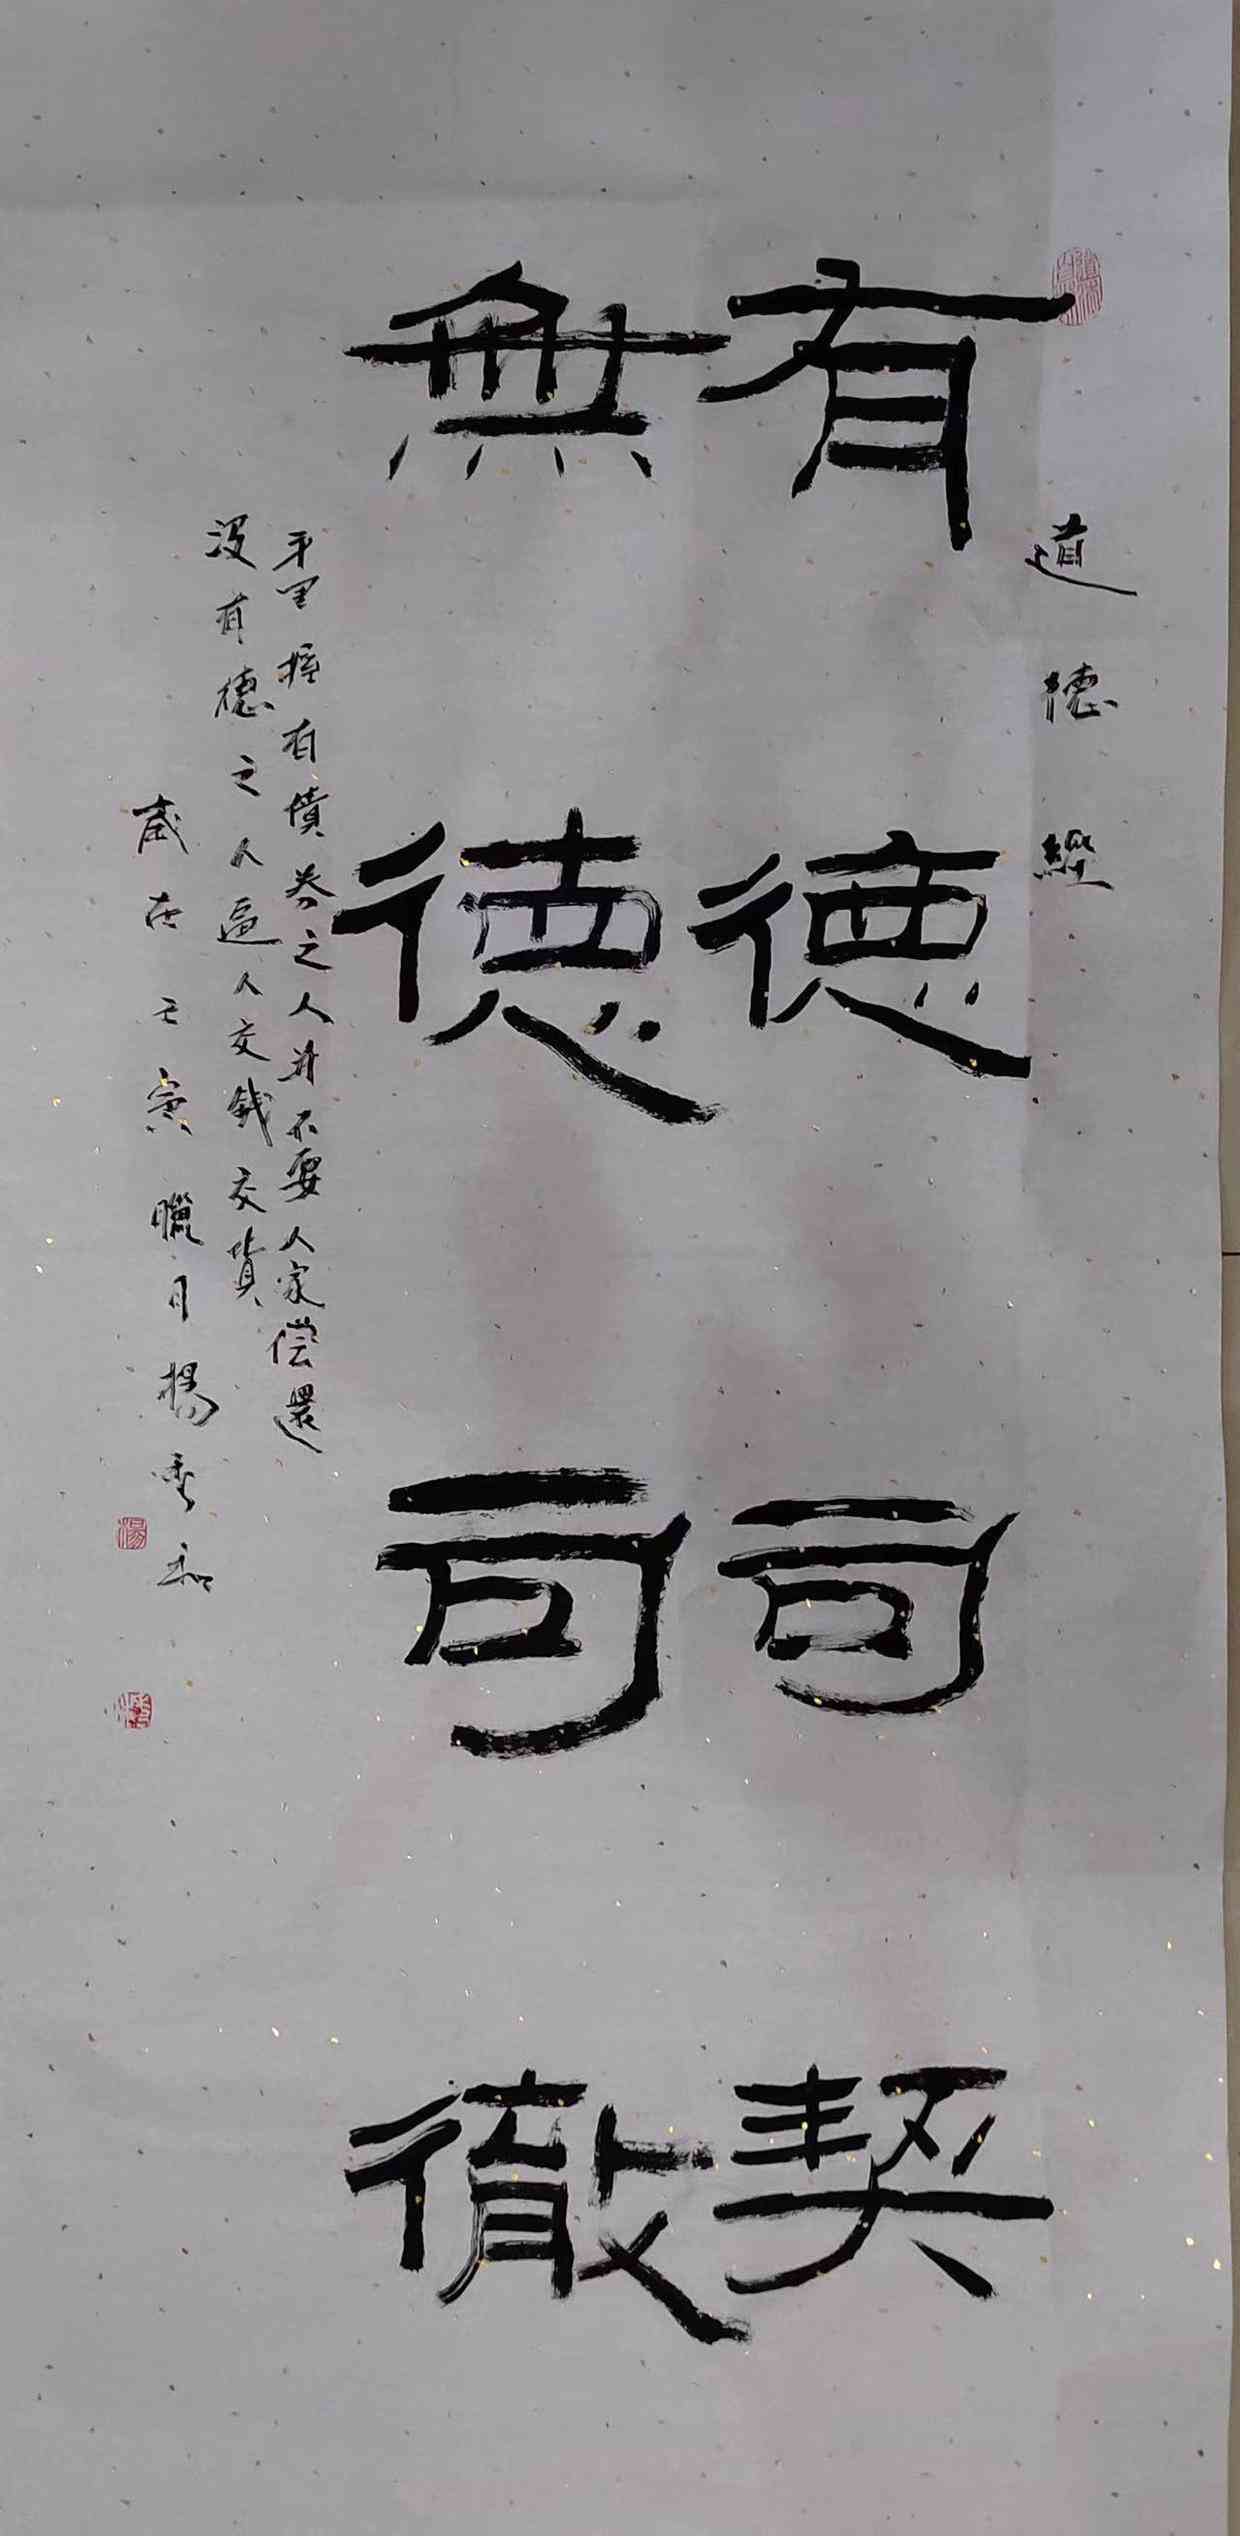 道德經
有德司契
無德司徹
手里握有債券之人并不要人家偿還
没有德之人逼人交錢交貨
歲在壬寅臘月楊秀和